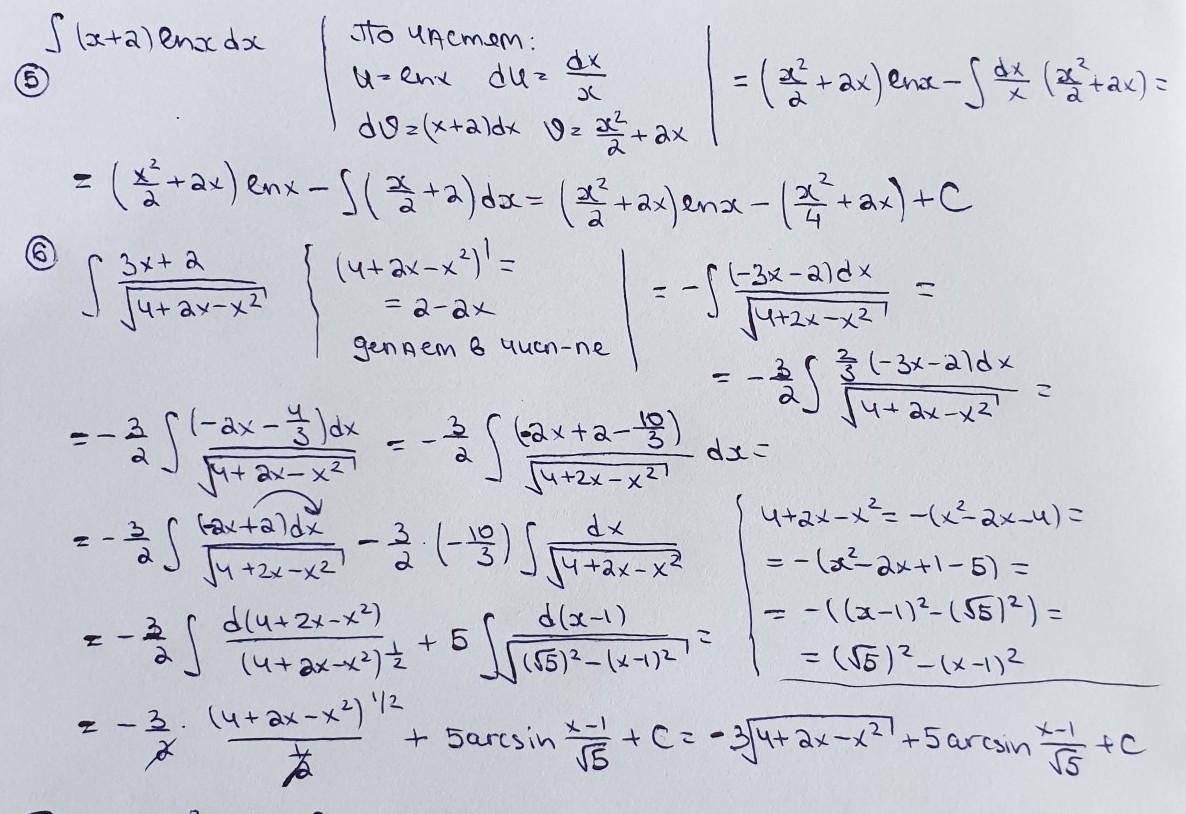 ∫ (x+2) lnx dx | По частям: u = lnx du = dx/x dv = (x+2)dx v = x²/2 + 2x | = (x²/2 + 2x) lnx − ∫ dx/x (x²/2 + 2x) =
⑤
= (x²/2 + 2x) lnx − ∫ (x/2 + 2) dx = (x²/2 + 2x) lnx − (x²/4 + 2x) + C
⑥ ∫ (3x+2)/√(4+2x−x²) { (4+2x−x²)' = = 2−2x делаем в числ-ле | = −∫ (−3x−2)dx/√(4+2x−x²) =
= −3/2 ∫ 2/3 (−3x−2)dx/√(4+2x−x²) =
= −3/2 ∫ (−2x − 4/3)dx/√(4+2x−x²) = −3/2 ∫ (−2x+2−10/3)/√(4+2x−x²) dx =
= −3/2 ∫ (−2x+2)dx/√(4+2x−x²) − 3/2 · (−10/3) ∫ dx/√(4+2x−x²)
4+2x−x² = −(x²−2x−4) =
= −(x²−2x+1−5) =
= −((x−1)²−(√5)²) =
= (√5)²−(x−1)²
= −3/2 ∫ d(4+2x−x²)/(4+2x−x²)^½ + 5 ∫ d(x−1)/√((√5)²−(x−1)²) =
= −3/2 · (4+2x−x²)^1/2/(1/2) + 5 arcsin (x−1)/√5 + C = −3√(4+2x−x²) + 5 arcsin (x−1)/√5 + C